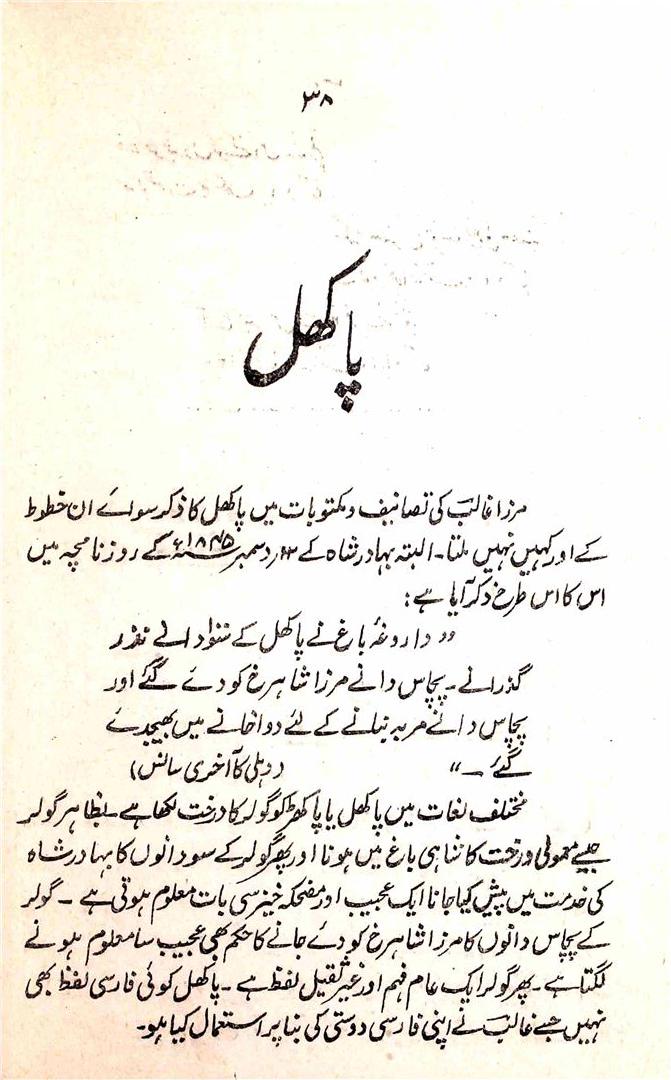 ۳۸
پاکھل
مرزا غالبؔ کی تصانیف و مکتوبات میں پاکھل کا ذکر سوائے ان خطوط
کے اور کہیں نہیں ملتا۔ البتہ بہادر شاہ کے دسمبر ۱۸۴۵ء کے روزنامچہ میں
اس کا اس طرح ذکر آیا ہے:
"داروغۂ باغ نے پاکھل کے سَو دانے نذر
گذرانے۔ پچاس دانے مرزا شاہرخ کو دے گئے اور
پچاس دانے مربہ بنانے کے لئے دواخانے میں بھیجدے
گئے۔" (دہلی کا آخری سانس)
مختلف لغات میں پاکھل یا پاکھڑ کو گولر کا درخت لکھا ہے۔ بظاہر گولر
جیسے معمولی درخت کا شاہی باغ میں ہونا اور پھر گولر کے سو دانوں کا بہادر شاہ
کی خدمت میں پیش کیا جانا ایک عجیب اور مضحکہ خیز سی بات معلوم ہوتی ہے۔ گولر
کے پچاس دانوں کا مرزا شاہرخ کو دے جانے کا حکم بھی عجیب سا معلوم ہونے
لگتا ہے۔ پھر گولر ایک عام فہم اور غیر ثقیل لفظ ہے۔ پاکھل کوئی فارسی لفظ بھی
نہیں جسے غالبؔ نے اپنی فارسی دوستی کی بنا پر استعمال کیا ہو۔